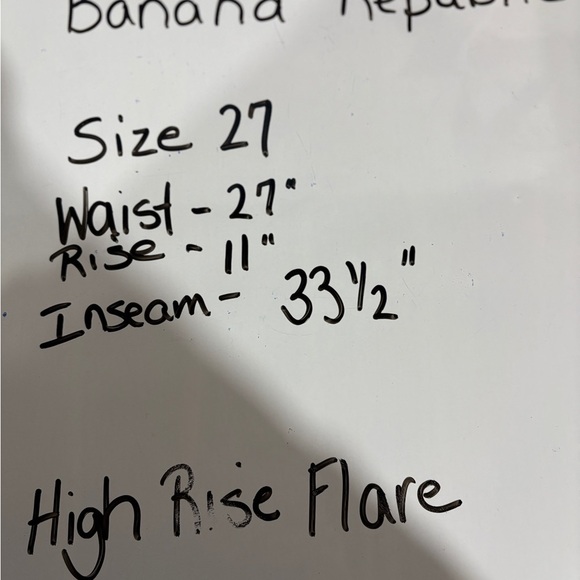 Banana Republic
Size 27
Waist - 27"
Rise - 11"
Inseam - 33 1/2"
High Rise Flare